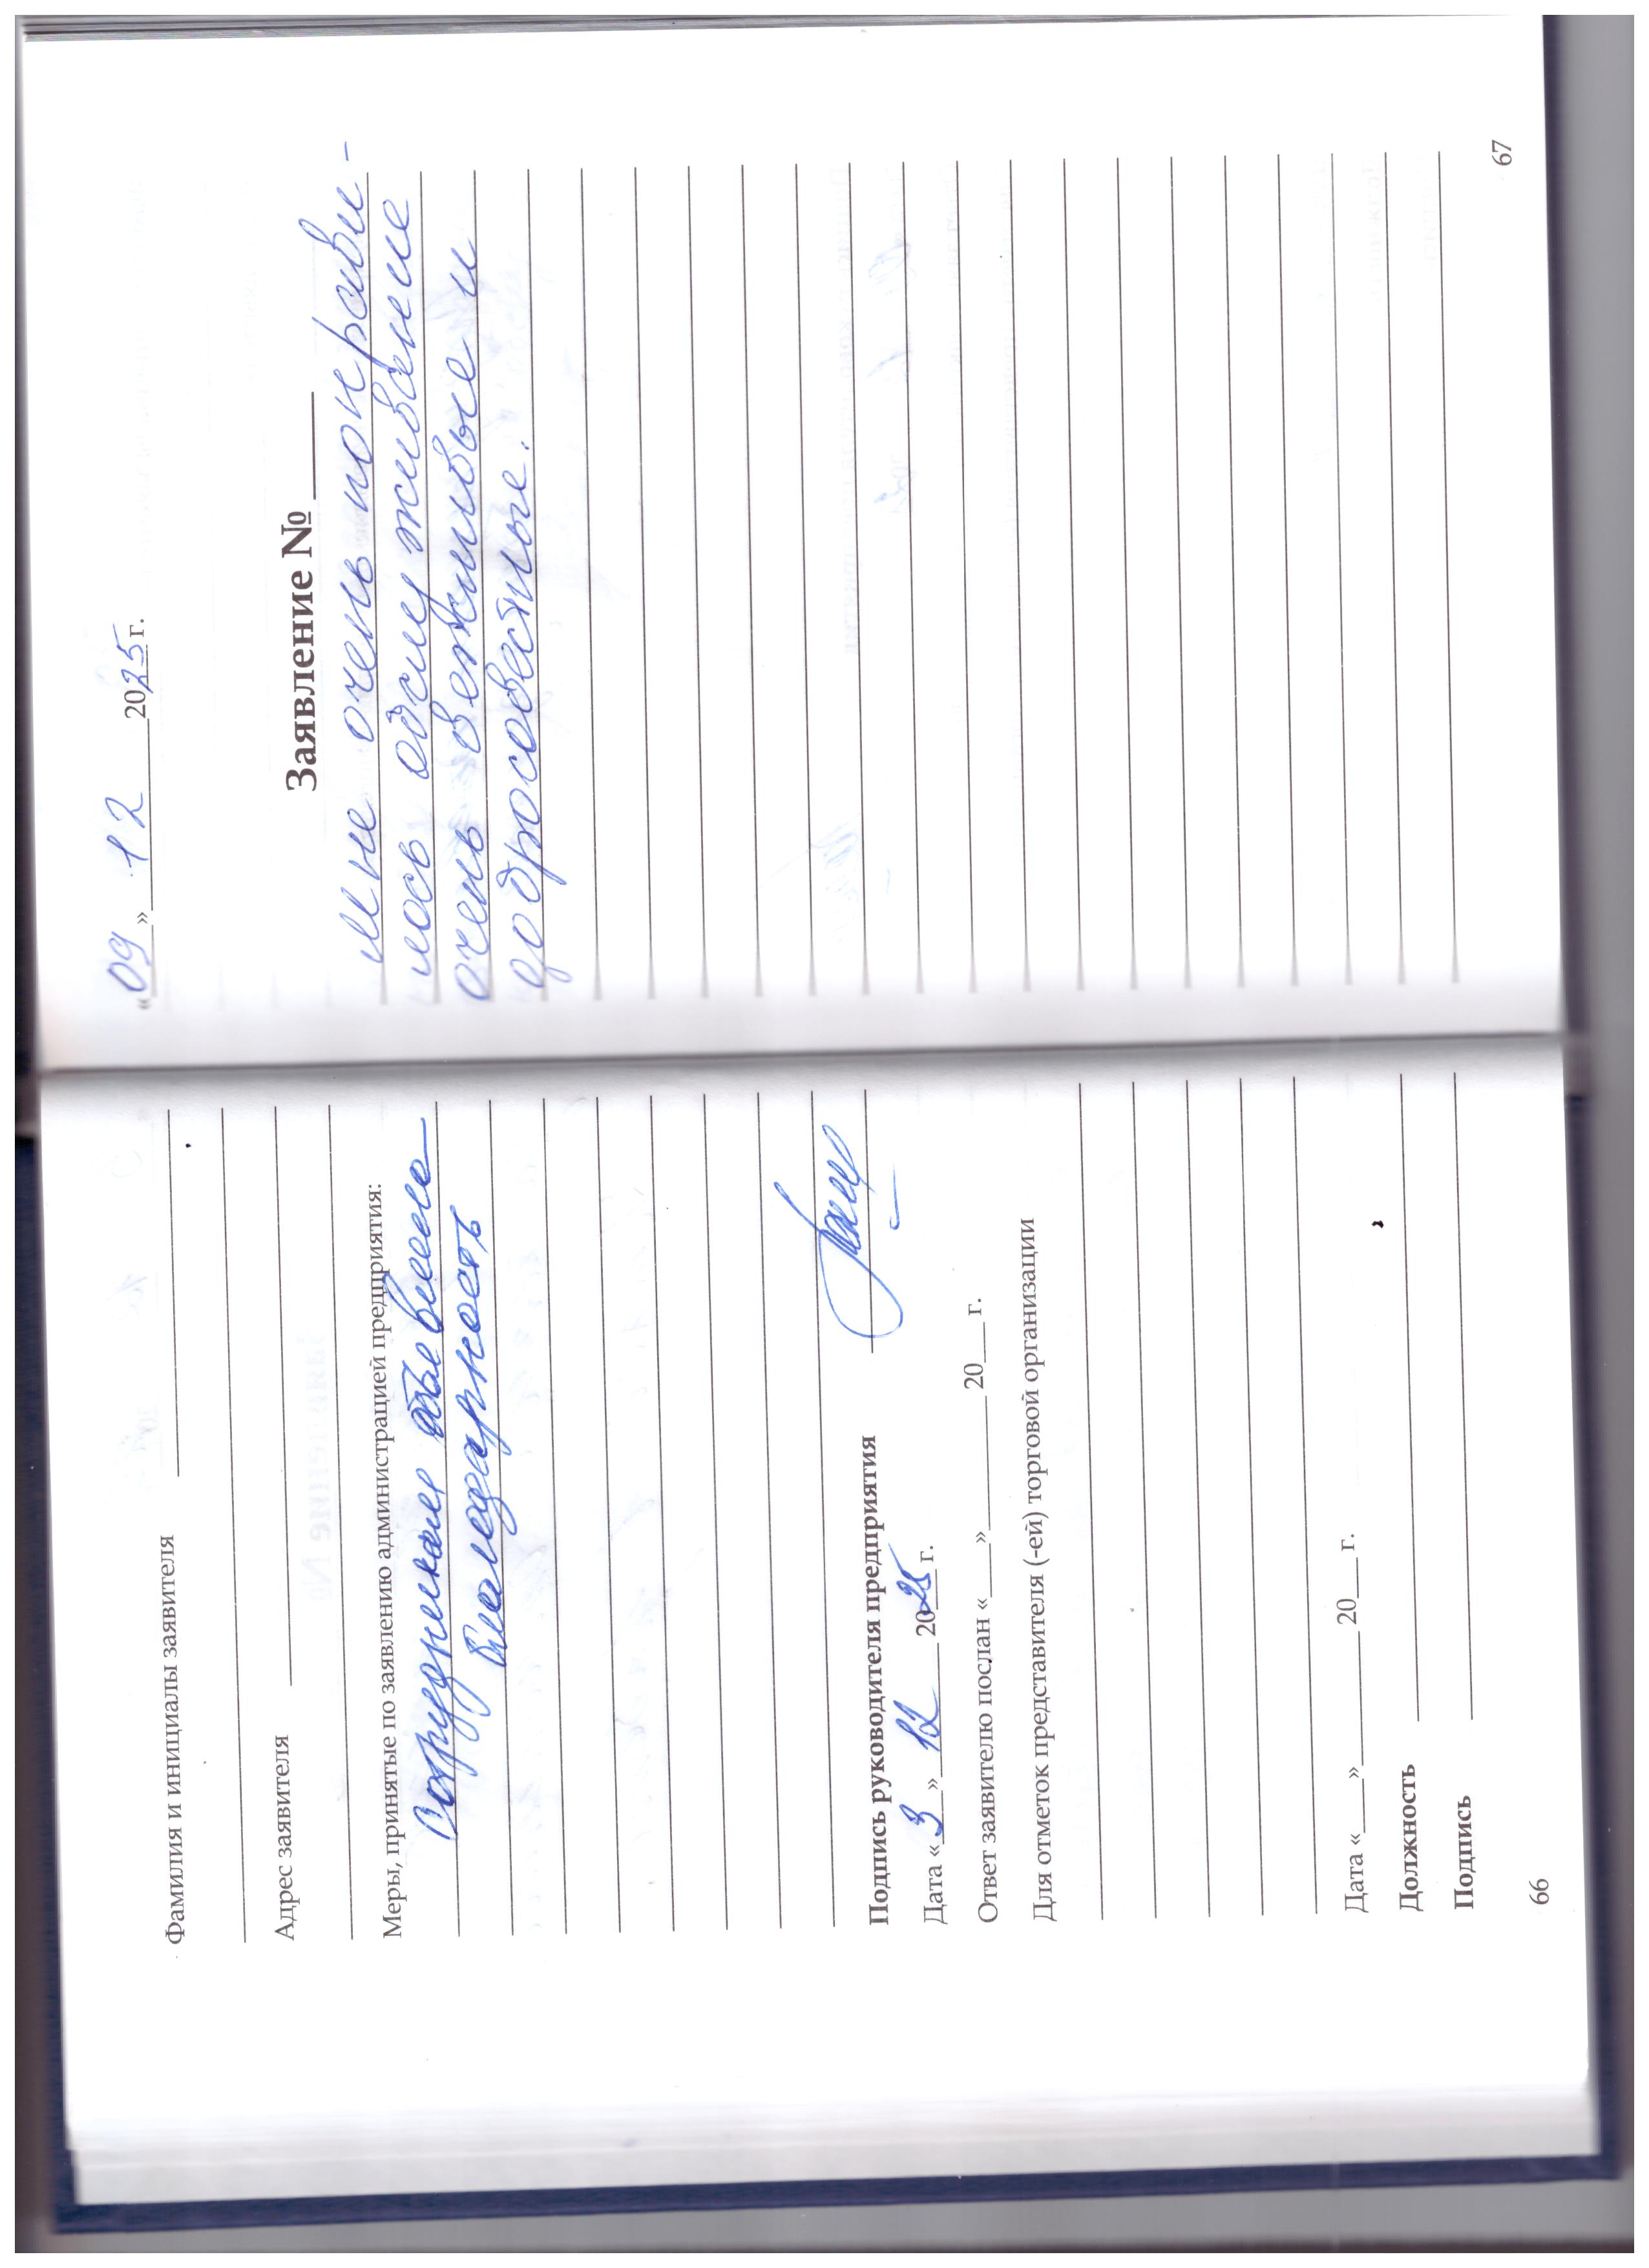 Фамилия и инициалы заявителя
Адрес заявителя
Меры, принятые по заявлению администрацией предприятия:
Сотрудникам объявлена
благодарность
Подпись руководителя предприятия
Дата «3» 12 2025 г.
Ответ заявителю послан «___» 20__ г.
Для отметок представителя (-ей) торговой организации
Дата «___» 20__ г.
Должность
Подпись
66
«09» 12 2025 г.
Заявление №
Мне очень понрави-
лось обслуживание
очень вежливые и
добросовестные.
67